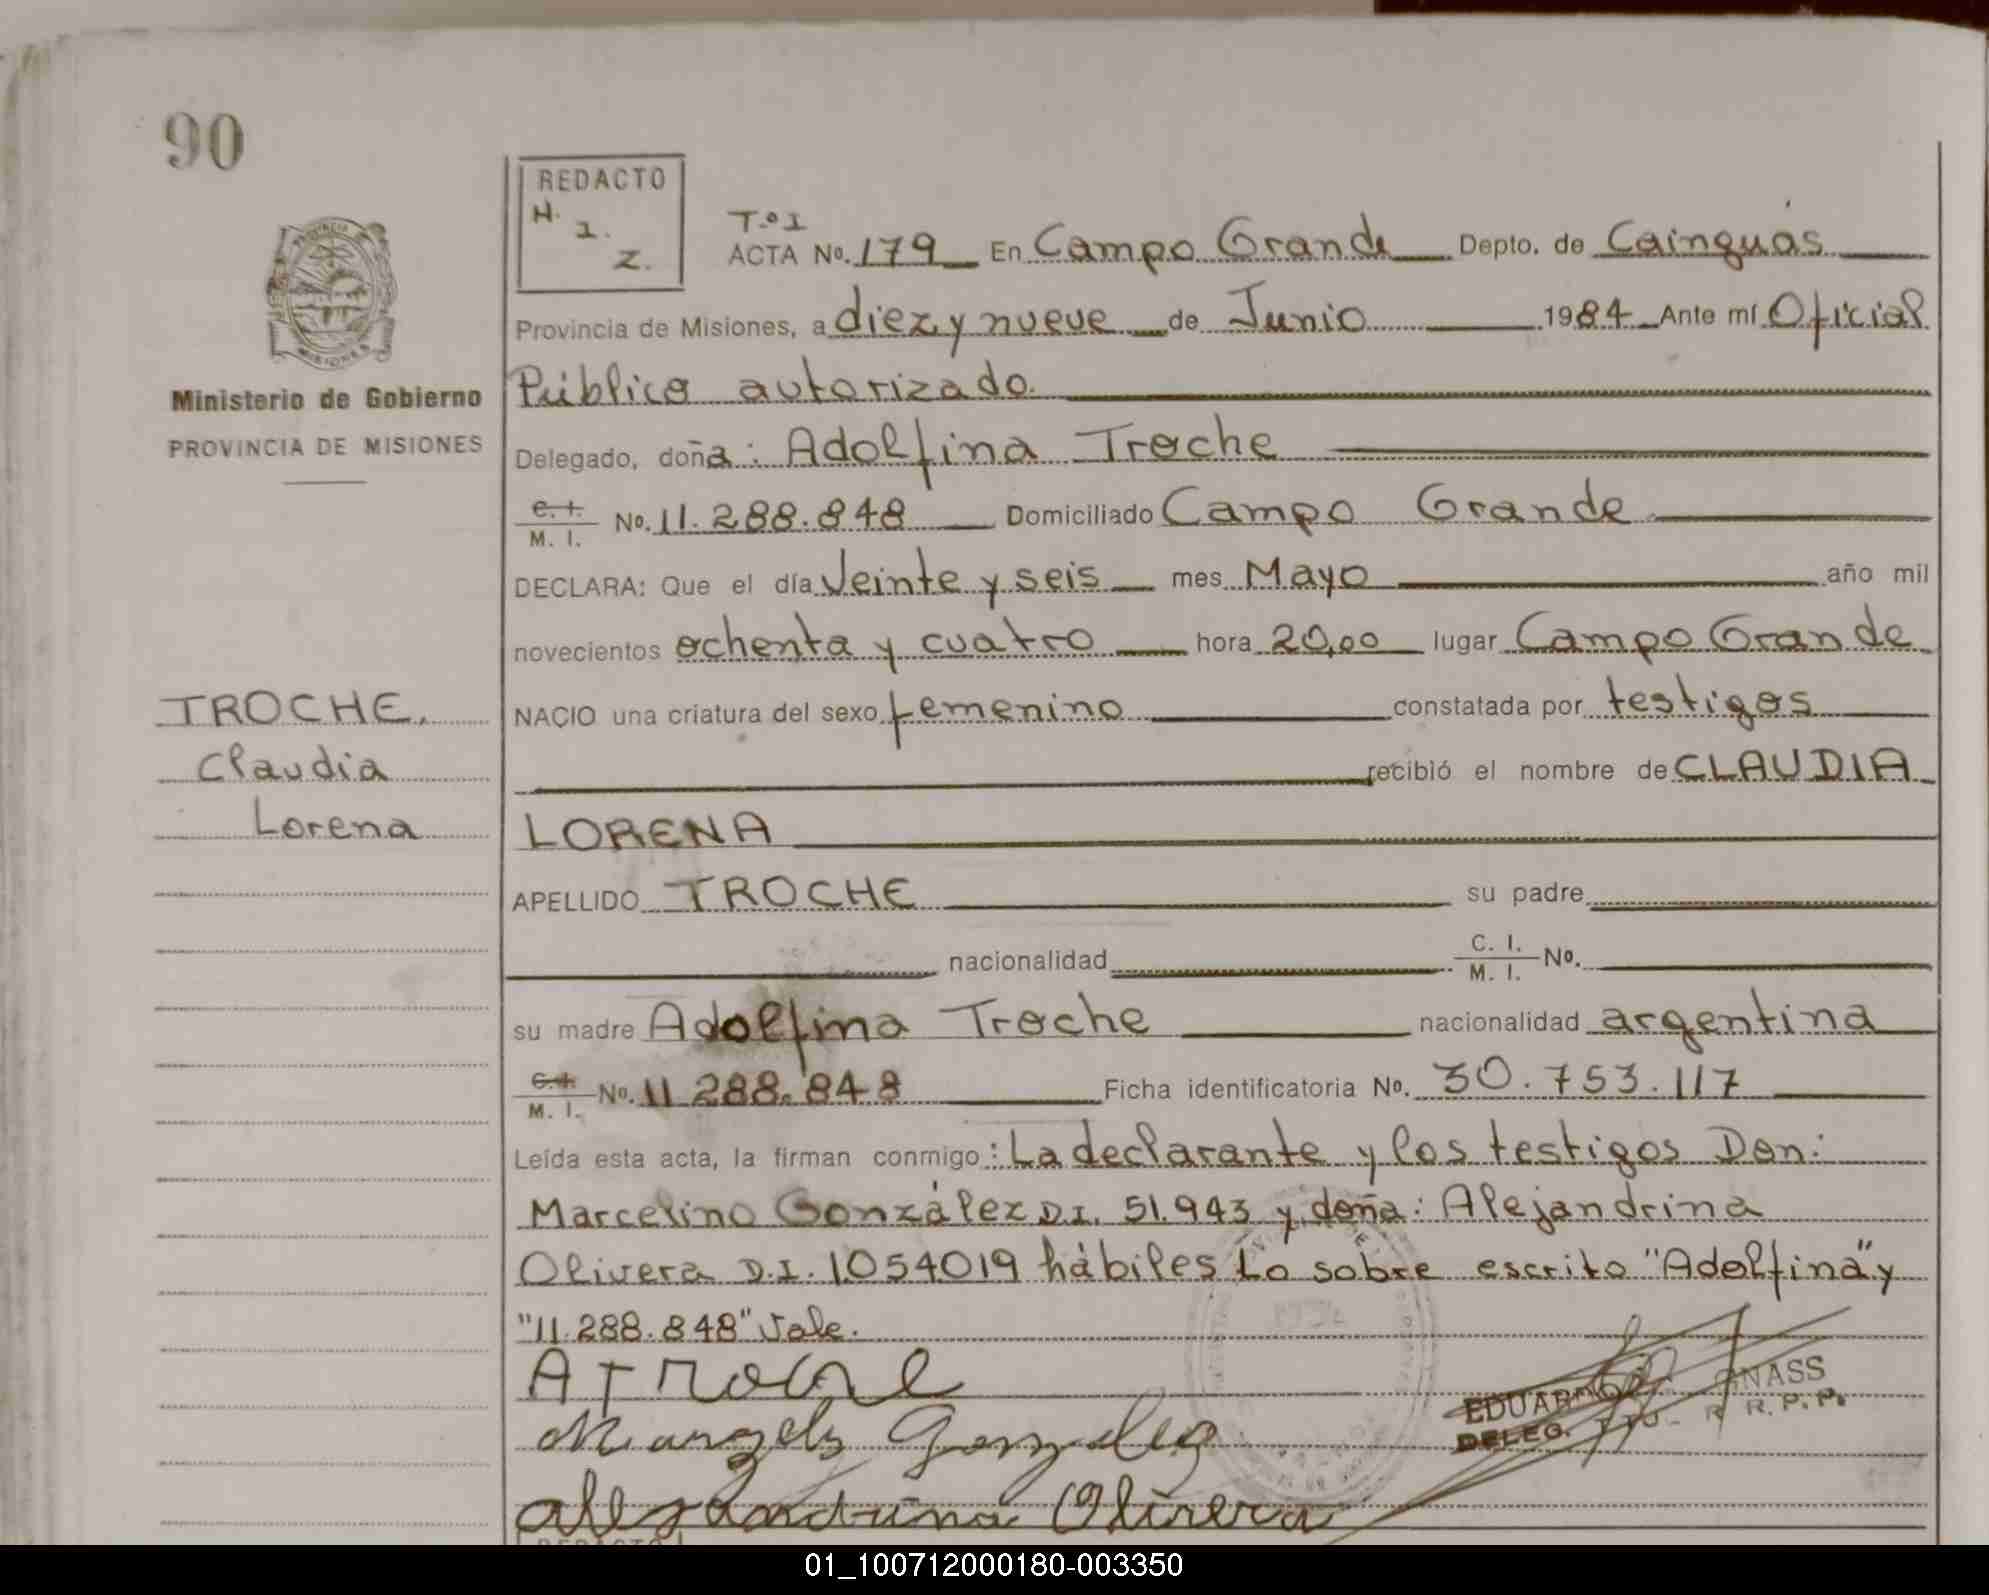 90
REDACTO
H. I. Z.
Tº I
ACTA No. 179 En Campo Grande Depto. de Cainguás
Provincia de Misiones, a diez y nueve de Junio 1984 Ante mí Oficial
Público autorizado.
Ministerio de Gobierno
PROVINCIA DE MISIONES
Delegado, doña: Adolfina Troche
C. I. M. I. No. 11.288.848 Domiciliado Campo Grande
DECLARA: Que el día Veinte y seis mes Mayo año mil
novecientos ochenta y cuatro hora 20,00 lugar Campo Grande
TROCHE,
Claudia
Lorena
NACIO una criatura del sexo femenino constatada por testigos
recibió el nombre de CLAUDIA
LORENA
APELLIDO TROCHE su padre
nacionalidad C. I. M. I. No.
su madre Adolfina Troche nacionalidad argentina
C. I. M. I. No. 11.288.848 Ficha identificatoria No. 30.753.117
Leída esta acta, la firman conmigo: La declarante y los testigos Don:
Marcelino González D.I. 51.943 y doña: Alejandrina
Olivera D.I. 1054019 hábiles Lo sobre escrito "Adolfina" y
"11.288.848" Vale.
A Troche
Gonzalez
EDUARDO
DELEG. R. R. P. P.
alejandrina Olivera
01_100712000180-003350